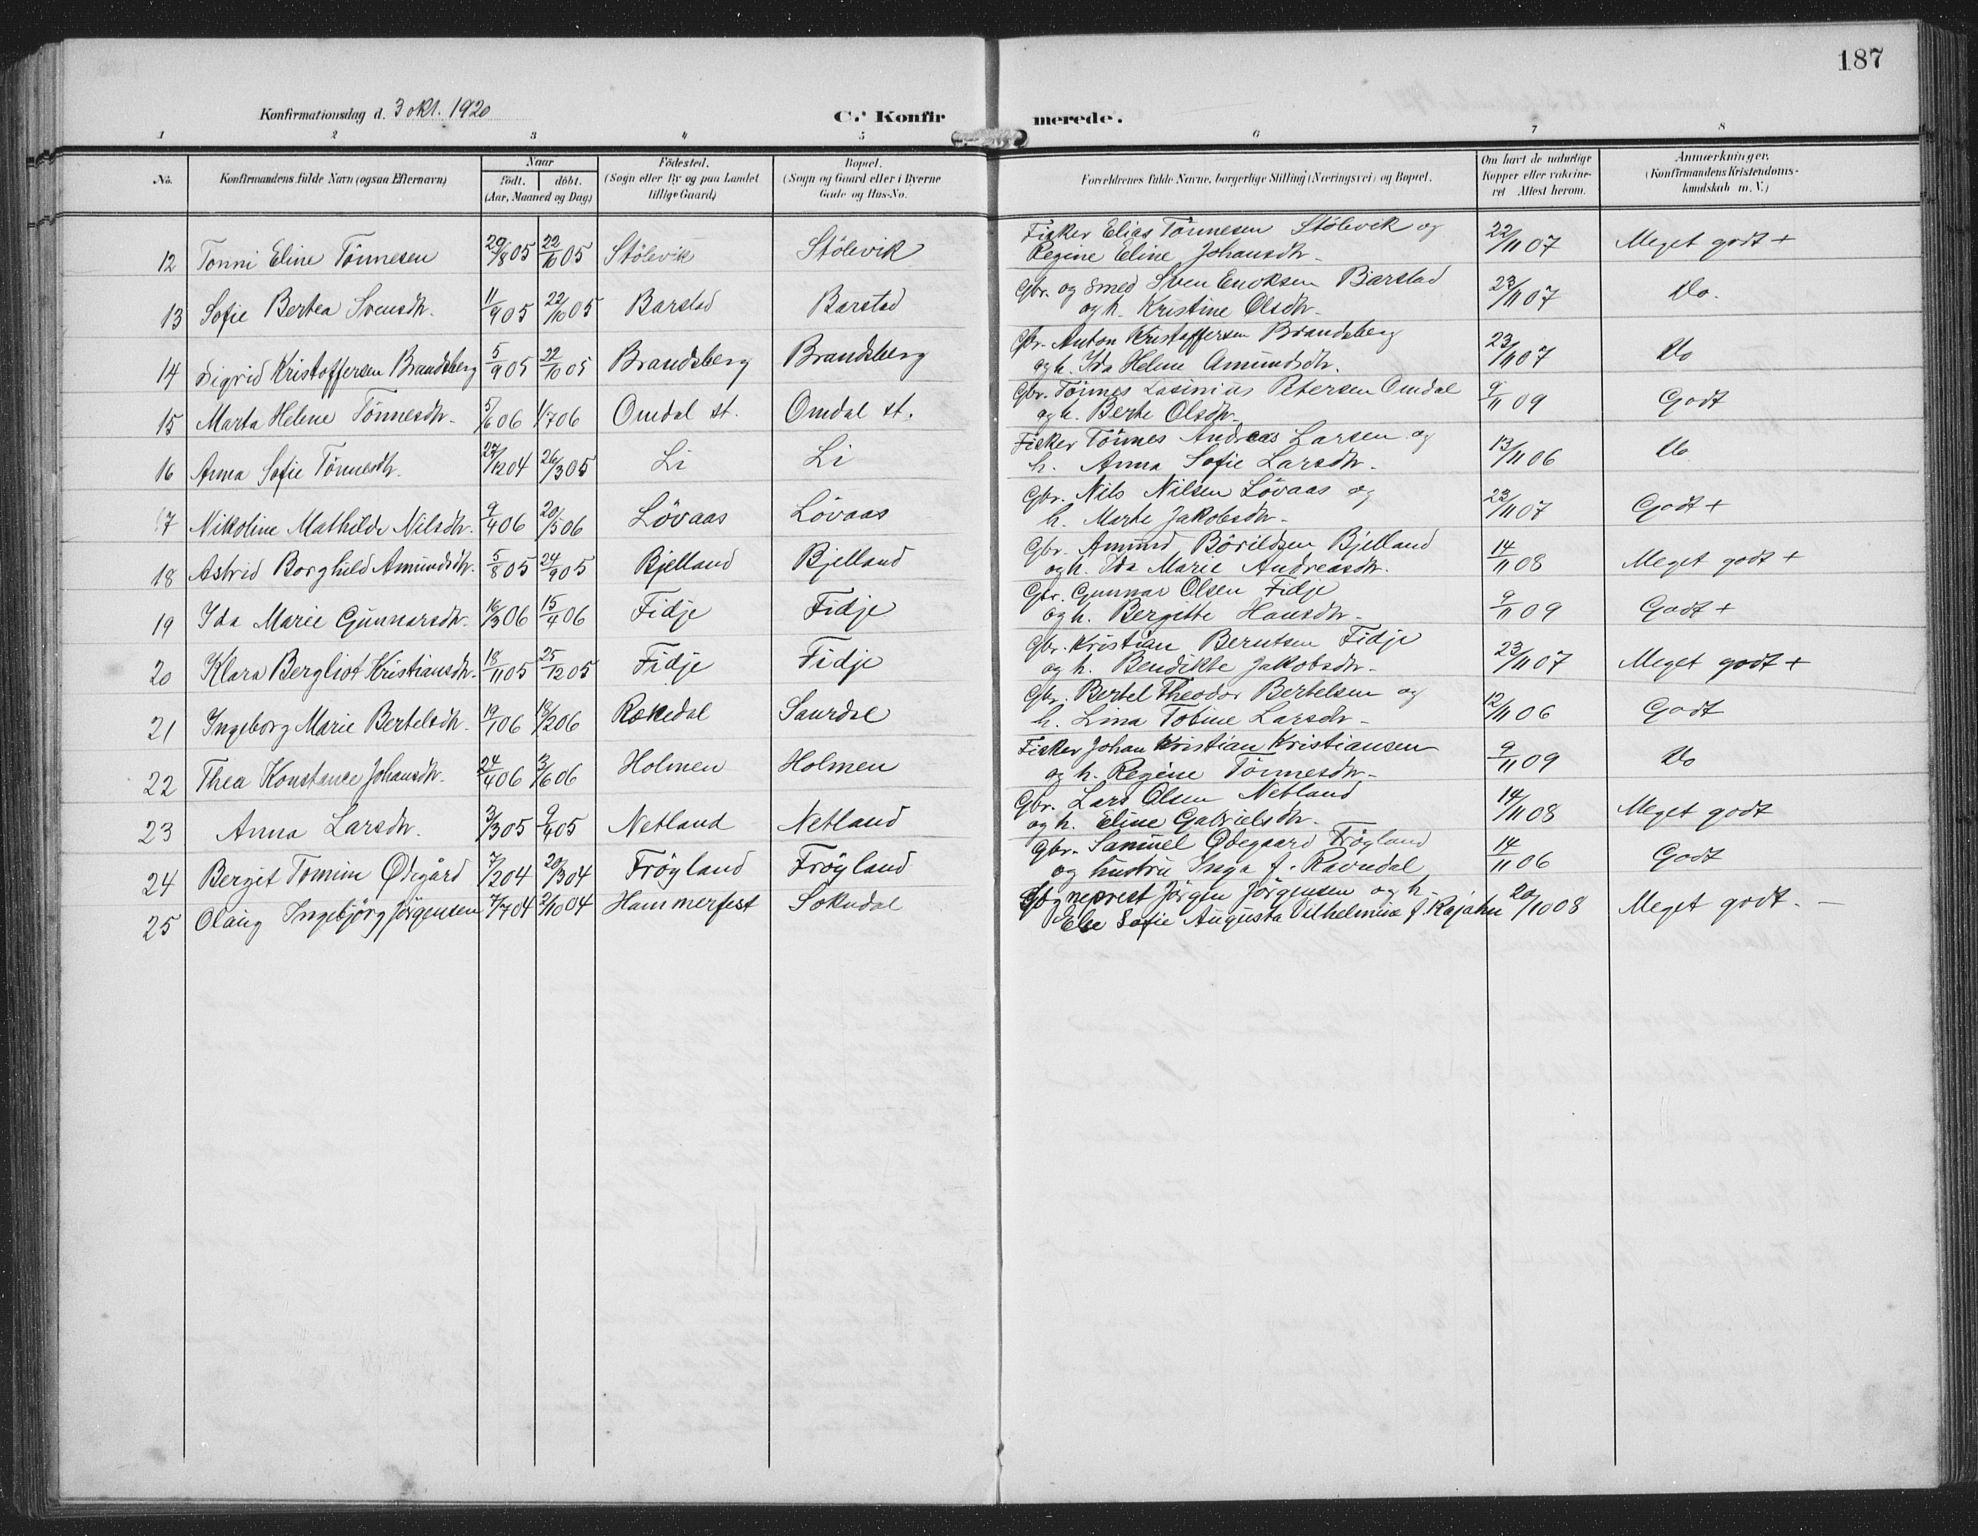 187
Konfirmationsdag d. 3 okt. 1920
C. Konfirmerede.
1 2 3 4 5 6 7 8
No. Konfirmandens fulde Navn (ogsaa Efternavn) Naar født. døbt. (Aar, Maaned og Dag) Fødested. (Sogn eller By og paa Landet tillige Gaard) Bopæl. (Sogn og Gaard eller i Byerne Gade og Hus-No. Forældrenes fulde Navne, borgerlige Stilling (Næringsvei) og Bopæl. Om havt de naturlige Kopper eller vakcineret Attest herom. Anmærkninger. (Konfirmandens Kristendomskundskab m. V.)
12 Tonni Eline Tönnesen 29/8 05 22/10 05 Stölevik Stölevik Fisker Elias Tönnesen Stölevik og
Regine Eline Johansdtr. 22/11 07 Meget godt +
13 Sofie Bertea Svensdtr. 11/9 05 22/10 05 Barstad Barstad Gbr. og smed Sven Enoksen Barstad
og h. Kristine Olsdtr. 23/11 07 Do.
14 Sigrid Kristoffersen Brandsberg 5/9 05 22/10 05 Brandsberg Brandsberg Gbr. Anton Kristoffersen Brandsberg
og h. Ida Helene Amundsdtr. 23/11 07 Do
15 Marta Helene Tönnesdtr. 5/6 06 1/7 06 Omdal st. Omdal st. Gbr. Tönnes Lasinius Petersen Omdal
og h. Berte Olsdtr. 9/11 09 Godt
16 Anna Sofie Tönnesdtr. 27/12 04 26/3 05 Li Li Fisker Tönnes Andreas Larsen og
h. Anna Sofie Larsdtr. 13/11 06 Do
17 Nikoline Mathilde Nilsdtr. 9/4 06 20/5 06 Lövaas Lövaas Gbr. Nils Nilsen Lövaas og
h. Marte Jakobsdtr. 23/11 07 Godt +
18 Astrid Borghild Amundsdtr. 5/8 05 24/9 05 Bjelland Bjelland Gbr. Amund Börildsen Bjelland
og h. Ida Marie Andreasdtr. 14/11 08 Meget godt +
19 Ida Marie Gunnarsdtr. 16/3 06 15/4 06 Fidje Fidje Gbr. Gunnar Olsen Fidje
og h. Bergitte Hansdtr. 9/11 09 Godt +
20 Klara Bergliot Kristiansdtr. 18/11 05 25/12 05 Fidje Fidje Gbr. Kristian Berntsen Fidje
og h. Bendikte Jakobsdtr. 23/11 07 Meget godt +
21 Ingeborg Marie Bertelsdtr. 19/1 06 18/2 06 Rækedal Saurdal Gbr. Bertel Theodor Bertelsen og
h. Lina Tobine Larsdtr. 12/11 06 Godt
22 Thea Konstance Johansdtr. 24/4 06 3/6 06 Holmen Holmen Fisker Johan Kristian Kristiansen
og h. Regine Tönnesdtr. 9/11 09 Do
23 Anna Larsdtr. 3/3 05 9/4 05 Netland Netland Gbr. Lars Olsen Netland
og h. Eline Gabrielsdtr. 14/11 08 Meget godt
24 Berget Tomine Ødegård 7/2 04 20/3 04 Fröyland Fröyland Gbr. Samuel Ødegaard Fröyland
og hustru Inga f. Ravndal 14/11 06 Godt
25 Olaug Ingebjörg Jörgensen 7/7 04 2/10 04 Hammerfest Sokndal Sogneprest Jörgen Jörgensen og h.
Else Sofie Augusta Vilhelmine f. Rajahn 20/10 08 Meget godt. —